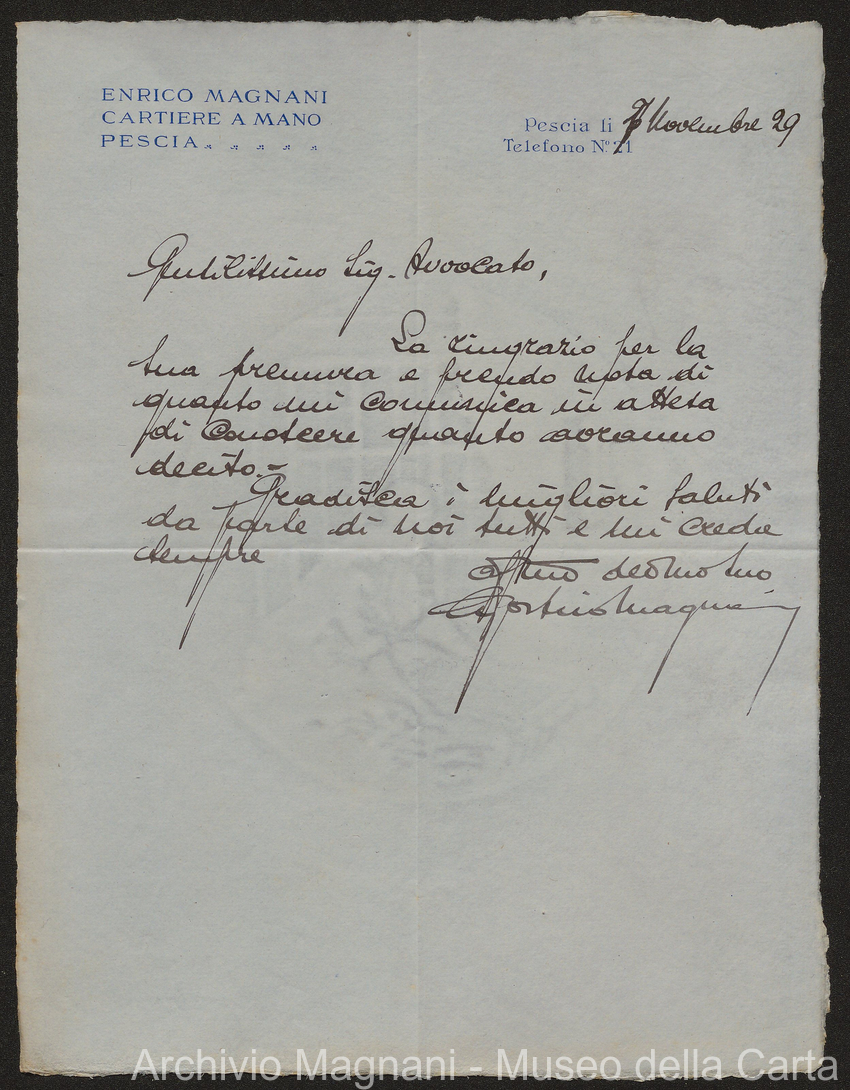 ENRICO MAGNANI
CARTIERE A MANO
PESCIA
Pescia li 7 Novembre 29
Telefono N.º 21
Gentilissimo Sig. Avvocato,
La ringrazio per la
sua premura e prendo nota di
quanto mi comunica in attesa
di conoscere quanto avranno
deciso.-
Gradisca i migliori saluti
da parte di noi tutti e mi creda
sempre
devmo suo
Magnani
Archivio Magnani - Museo della Carta